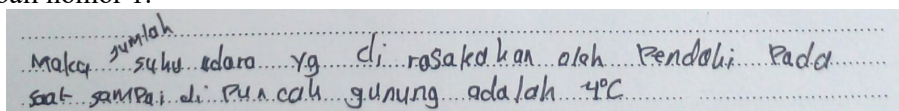 ban nomor 1.
jumlah
Maka suhu udara yg di rasakakan olah Pendaki Pada
saat sampai di Puncak gunung adalah 4°C